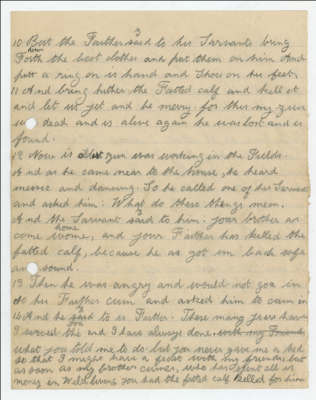 3
10 But the Faither said to his Sarvants bring
down
Forth the best clothes and put them on him And
putt a ring on is hand and Shoes on his feet,
11 And bring hither the Fatted calf and kell it
and let us yet and be merry. for this my zun
was dead and is alive again he was lost and is
found.
12 Now is zun was working in the Fields.
And as he came near to the house, he heard
music and dancing. So he called one of her Sarvant
and asked him. What do these things mean.
And the Sarvant said to him. your brother as
home
come, and your Faither has kelled the
fatted calf, because he as got im back safe
and sound.
13 Then he was angry and would not goa in
so his Faither cum and asked him to cum in
14 And he said to is Faither. These many years have
you
I served and I have always done
what you told me to do. but you never gave me a ked
so that I might have a feast with my friends, but
as soon as my brother cumes, who has spent all is
money in Wild living You had the fatted calf kelled for him